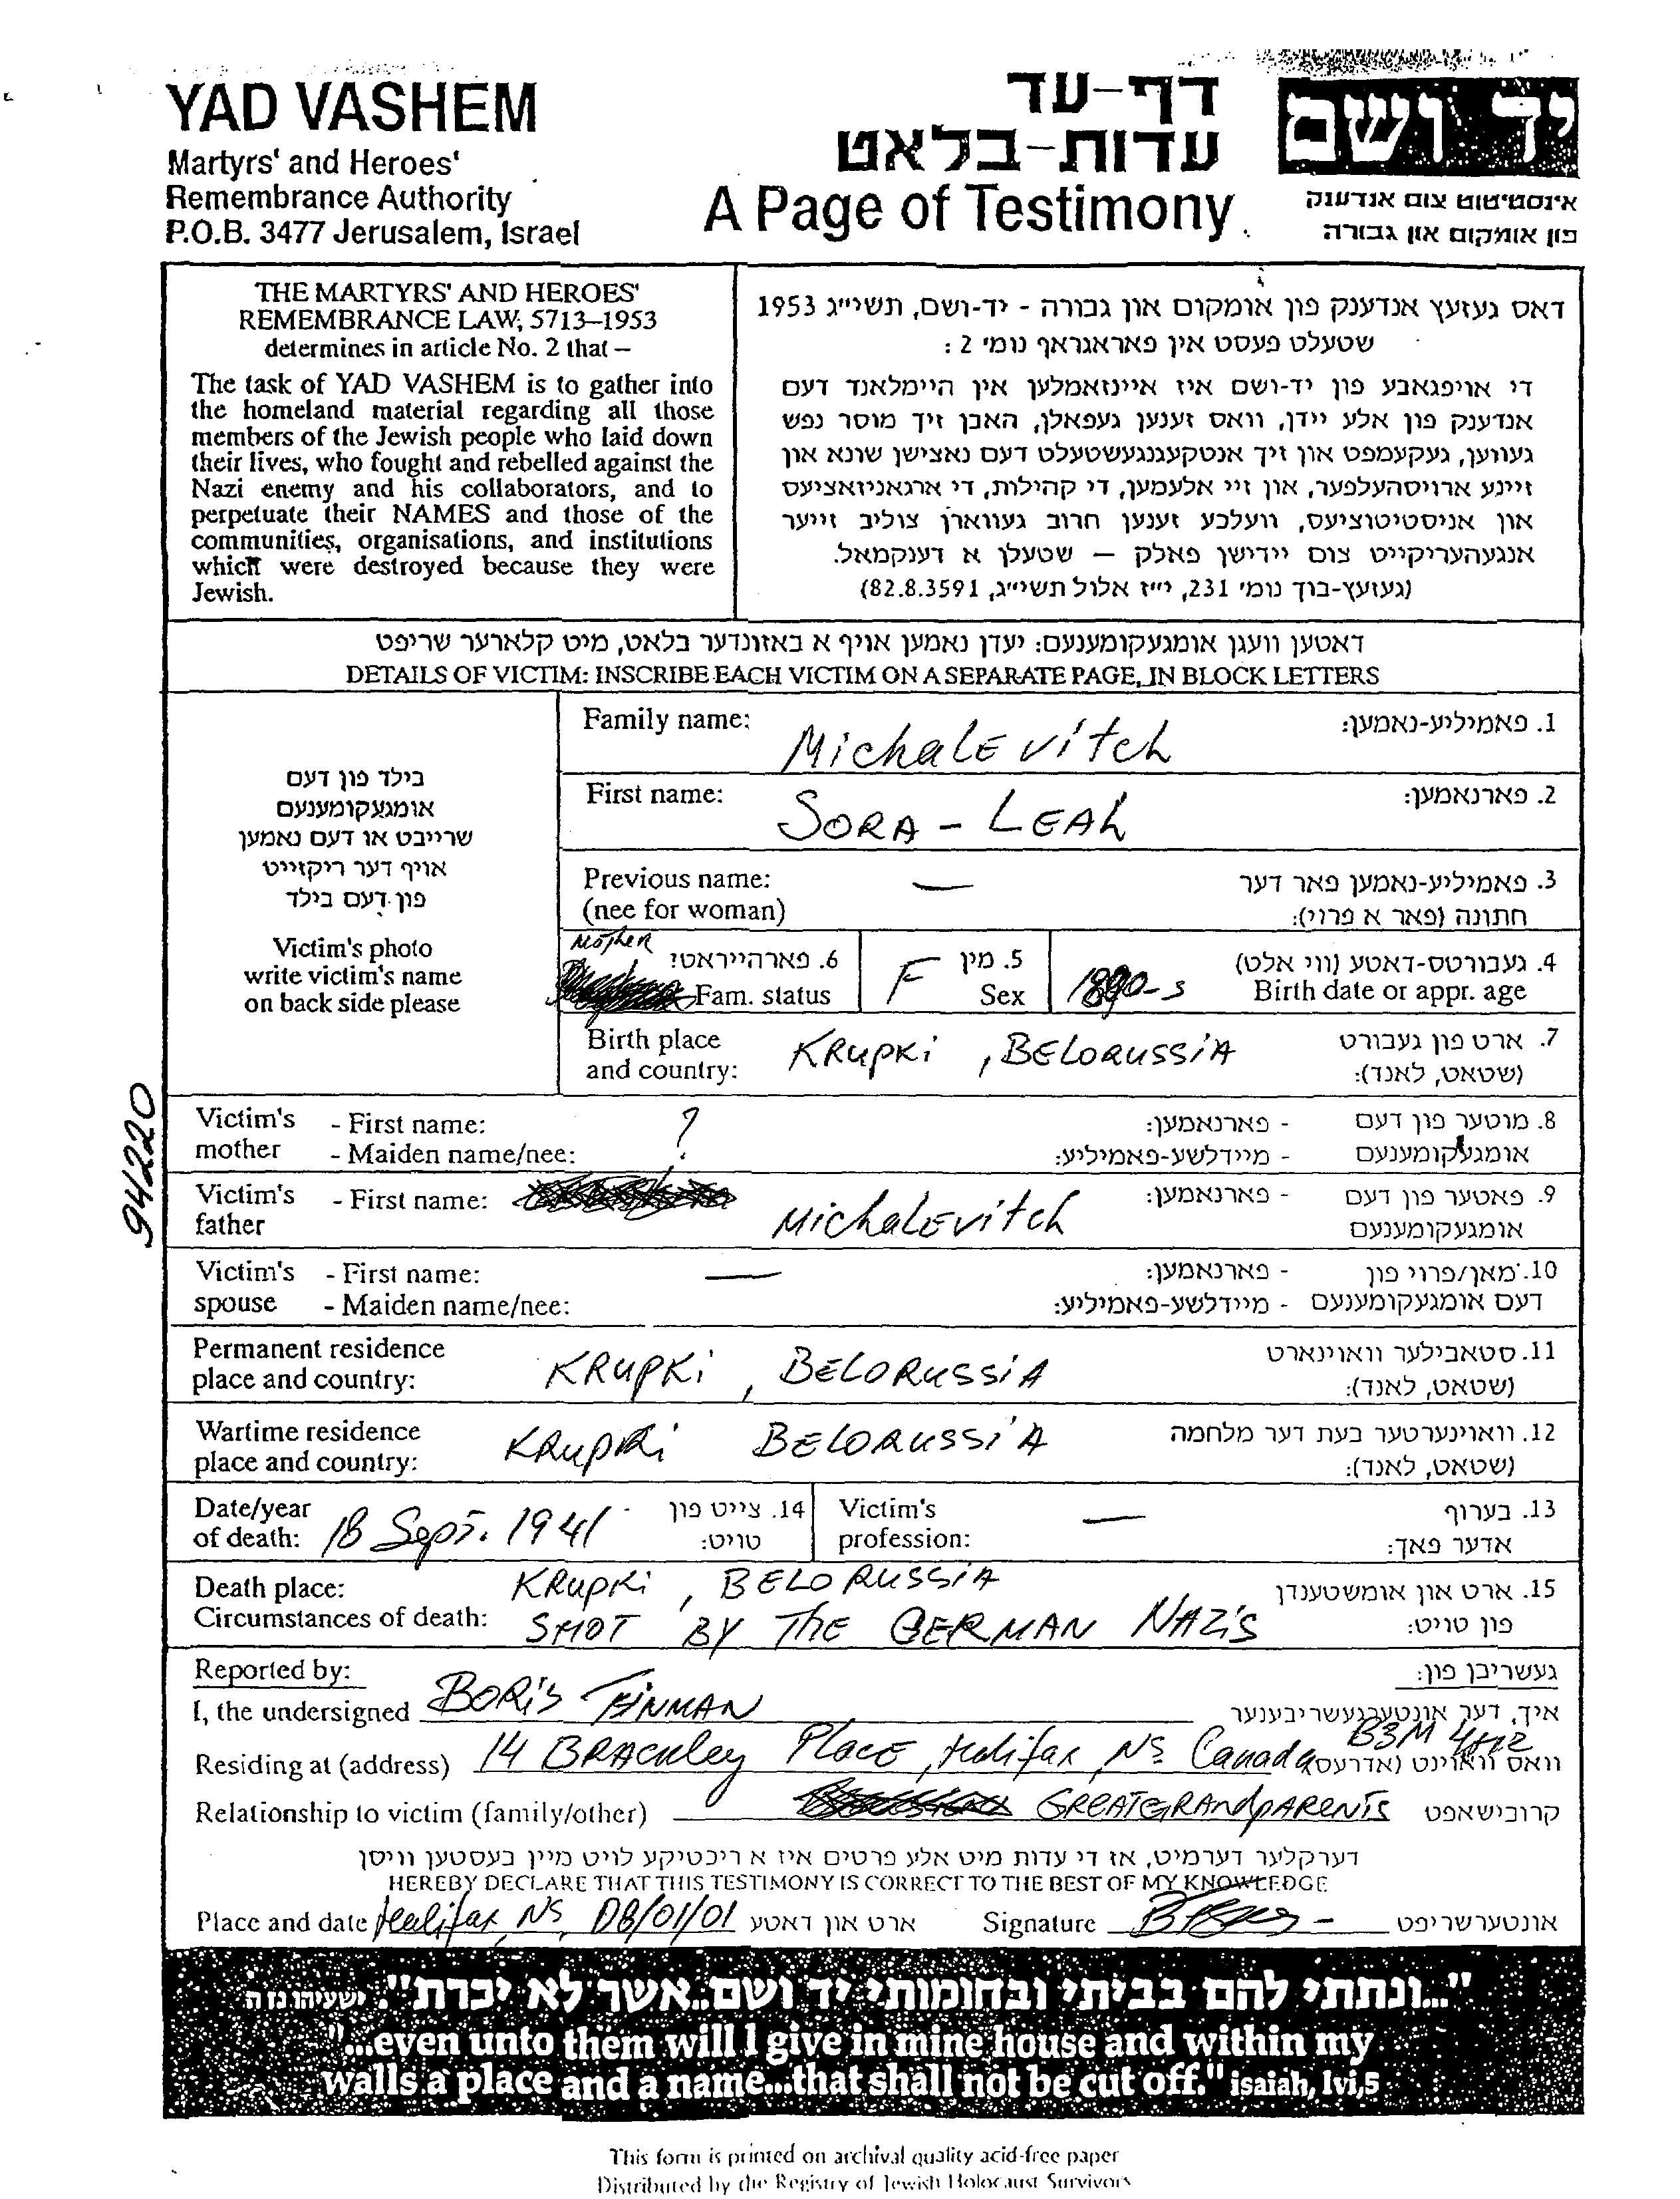 YAD VASHEM
Martyrs' and Heroes'
Remembrance Authority
P.O.B. 3477 Jerusalem, Israel
דף-עד
עדות-בלאט
A Page of Testimony
יד ושם
אינסטיטוט צום אנדענק
פון אומקום און גבורה
THE MARTYRS' AND HEROES'
REMEMBRANCE LAW, 5713–1953
determines in article No. 2 that –
The task of YAD VASHEM is to gather into
the homeland material regarding all those
members of the Jewish people who laid down
their lives, who fought and rebelled against the
Nazi enemy and his collaborators, and to
perpetuate their NAMES and those of the
communities, organisations, and institutions
which were destroyed because they were
Jewish.
דאס געזעץ אנדענק פון אומקום און גבורה - יד-ושם, תשי״ג 1953
שטעלט פעסט אין פאראגראף נומ׳ 2 :
די אויפגאבע פון יד-ושם איז איינזאמלען אין היימלאנד דעם
אנדענק פון אלע יידן, וואס זענען געפאלן, האבן זיך מוסר נפש
געווען, געקעמפט און זיך אנטקעגנגעשטעלט דעם נאצישן שונא און
זיינע ארויסהעלפער, און זיי אלעמען, די קהילות, די ארגאניזאציעס
און אניסטיטוציעס, וועלכע זענען חרוב געווארן צוליב זייער
אנגעהעריקייט צום יידישן פאלק – שטעלן א דענקמאל.
(געזעץ-בוך נומ׳ 231, י״ז אלול תשי״ג, 82.8.3591)
דאטען וועגן אומגעקומענעם: יעדן נאמען אויף א באזונדער בלאט, מיט קלארער שריפט
DETAILS OF VICTIM: INSCRIBE EACH VICTIM ON A SEPARATE PAGE, IN BLOCK LETTERS
בילד פון דעם
אומגעקומענעם
שרייבט או דעם נאמען
אויף דער ריקזייט
פון דעם בילד
Victim's photo
write victim's name
on back side please
Family name: MichaLEvitch 1. פאמיליע-נאמען:
First name: SORA - LEAh 2. פארנאמען:
Previous name: — 3. פאמיליע-נאמען פאר דער
(nee for woman) חתונה (פאר א פרוי):
Mother 6. פארהייראט? 5. מין 4. געבורטס-דאטע (ווי אלט)
Fam. status F Sex 1890-s Birth date or appr. age
Birth place KRupKi , BELORUSSiA 7. ארט פון געבורט
and country: (שטאט, לאנד):
Victim's - First name: ? - פארנאמען: 8. מוטער פון דעם
mother - Maiden name/nee: - מיידלשע-פאמיליע: אומגעקומענעם
Victim's - First name: MichaLEvitch - פארנאמען: 9. פאטער פון דעם
father אומגעקומענעם
Victim's - First name: — - פארנאמען: 10. מאן/פרוי פון
spouse - Maiden name/nee: - מיידלשע-פאמיליע: דעם אומגעקומענעם
Permanent residence KRupKi , BELORUSSiA 11. סטאבילער וואוינארט
place and country: (שטאט, לאנד):
Wartime residence KRupKi BELORUSSiA 12. וואוינערטער בעת דער מלחמה
place and country: (שטאט, לאנד):
Date/year 14. צייט פון Victim's — 13. בערוף
of death: 18 Sept. 1941 טויט: profession: אדער פאך:
Death place: KRupKi , BELORUSSiA 15. ארט און אומשטענדן
Circumstances of death: SHOT BY ThE GERMAN NAZiS פון טויט:
Reported by: געשריבן פון:
I, the undersigned BORiS FINMAN איך, דער אונטערגעשריבענער
B3M
Residing at (address) 14 BRACKLey PLace, Halifax, NS Canada וואס וואוינט (אדרעס)
Relationship to victim (family/other) GREATGRANdpARENTS קרובישאפט
דערקלער דערמיט, אז די עדות מיט אלע פרטים איז א ריכטיקע לויט מיין בעסטען וויסן
HEREBY DECLARE THAT THIS TESTIMONY IS CORRECT TO THE BEST OF MY KNOWLEDGE
Place and date Halifax, NS, 08/01/01 ארט און דאטע Signature אונטערשריפט
94220
"...ונתתי להם בביתי ובחומותי יד ושם..אשר לא יכרת". ישעיהו נו ה
"...even unto them will I give in mine house and within my
walls a place and a name...that shall not be cut off." isaiah, lvi,5
This form is printed on archival quality acid-free paper
Distributed by the Registry of Jewish Holocaust Survivors